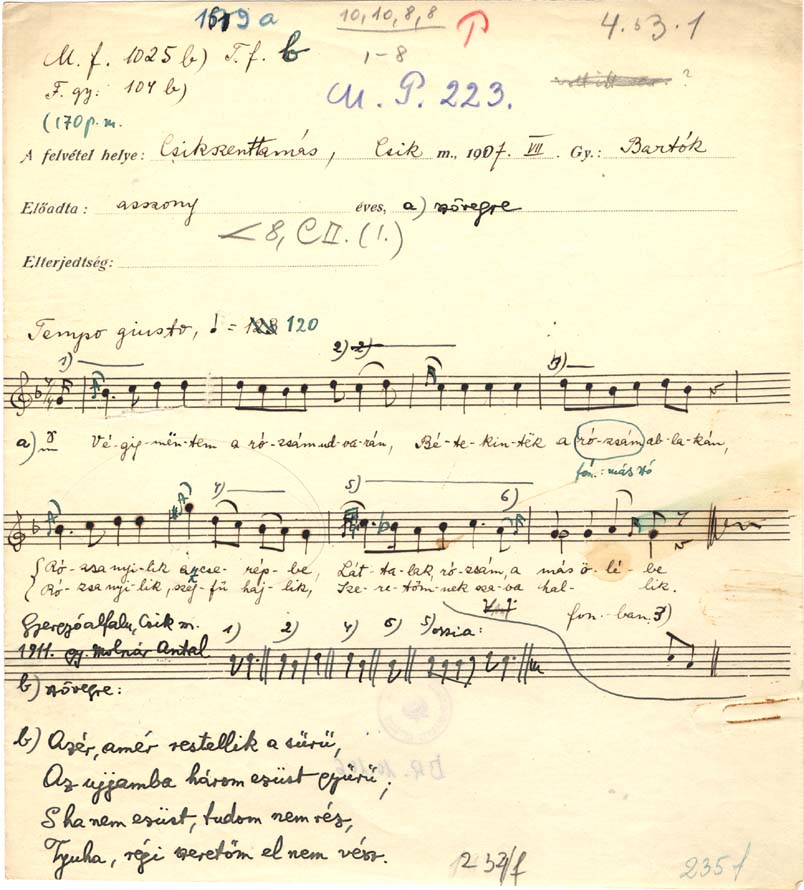 1679 a 10, 10, 8, 8 P 4.53.1
M. f. 1025 b) T. f. b 1-8
F. gy: 104 b) M. P. 223. ?
(170 p. m.
A felvétel helye: Csikszenttamás, Csik m., 1907. VII. Gy.: Bartók
Előadta: asszony éves, a) szövegre
<8, C II. (1.)
Elterjedtség:
Tempo giusto, ♩ = 120
1) 2) 2) 3)
a) Vé-gig-mëntem a ró-zsám ud-va-rán, Bé-te-kin-ték a ró-zsám ab-la-kán,
fon.: más tó
4) 5) 6)
Ró-zsa nyi-lik a cse-rép-be, Lát-ta-lak, ró-zsám, a más ö-lé-be
Ró-zsa nyi-lik, szëj-fű haj-lik, Sze-re-tőm-nek sza-va hal-lik.
Gyergyóalfalu, Csik m. 1) 2) 4) 6) 5) ossia: fon.-ban 3)
1911. gy. Molnár Antal
b) szövegre:
b) Azér, amér restellik a sürü,
Az ujjamba három ezüst gyürü;
S ha nem ezüst, tudom nem réz,
Tyuha, régi szeretőm el nem vész.
232/f 235 f